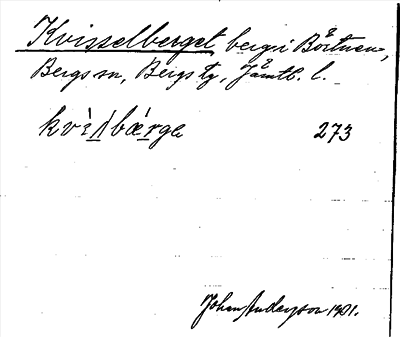 Kvisselberget, berg i Börtnen,
Bergs sn, Bergs tg, Jämtl. l.
kvìs̀̀lbǽrge 273
Johan Anderson 1901.